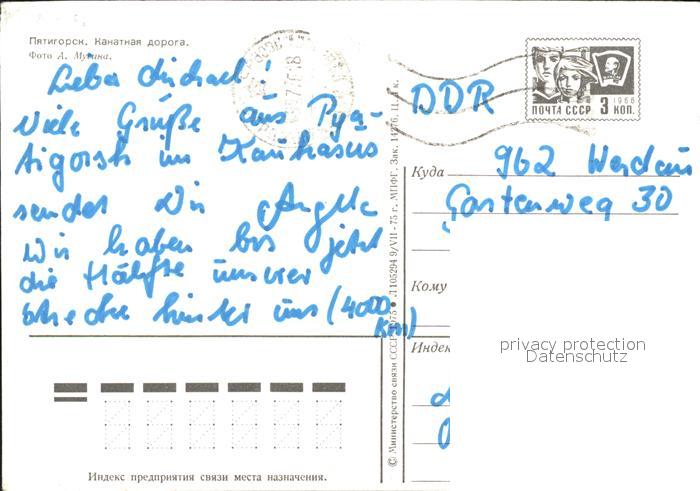 Пятигорск. Канатная дорога.
Фото А. Мусина.
Lieber Michael!
Viele Grüße aus Pya-
tigorsk im Kaukasus
sendet Dir Angela
Wir haben bis jetzt
die Hälfte unserer
Strecke hinter uns (4000
Km)
DDR
ПОЧТА СССР 3 КОП.
1966
Куда 962 Werdau
Gartenweg 30
Кому
Индек
© Министерство связи СССР, 1975 • Л105294 9/VII-75 г., МПФГ. Зак. 14276, II. 4 к.
privacy protection
Datenschutz
Индекс предприятия связи места назначения.